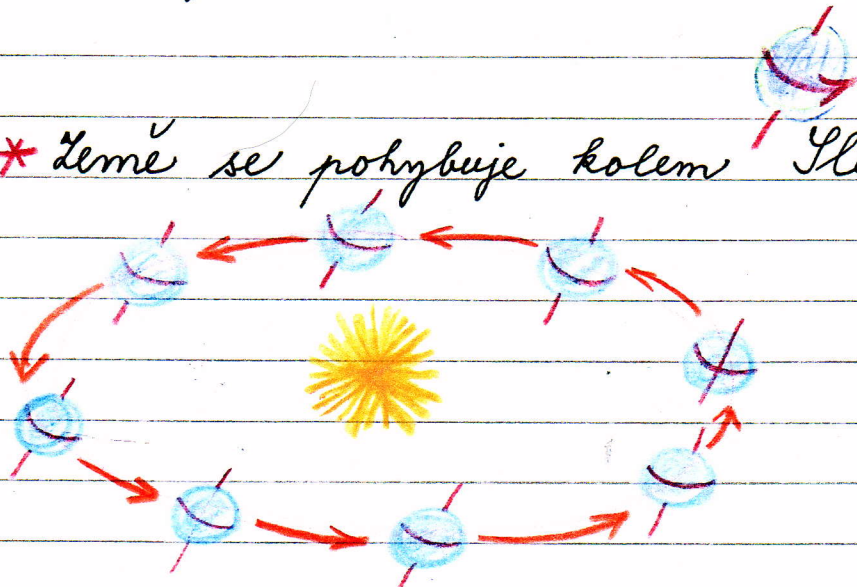 * Země se pohybuje kolem